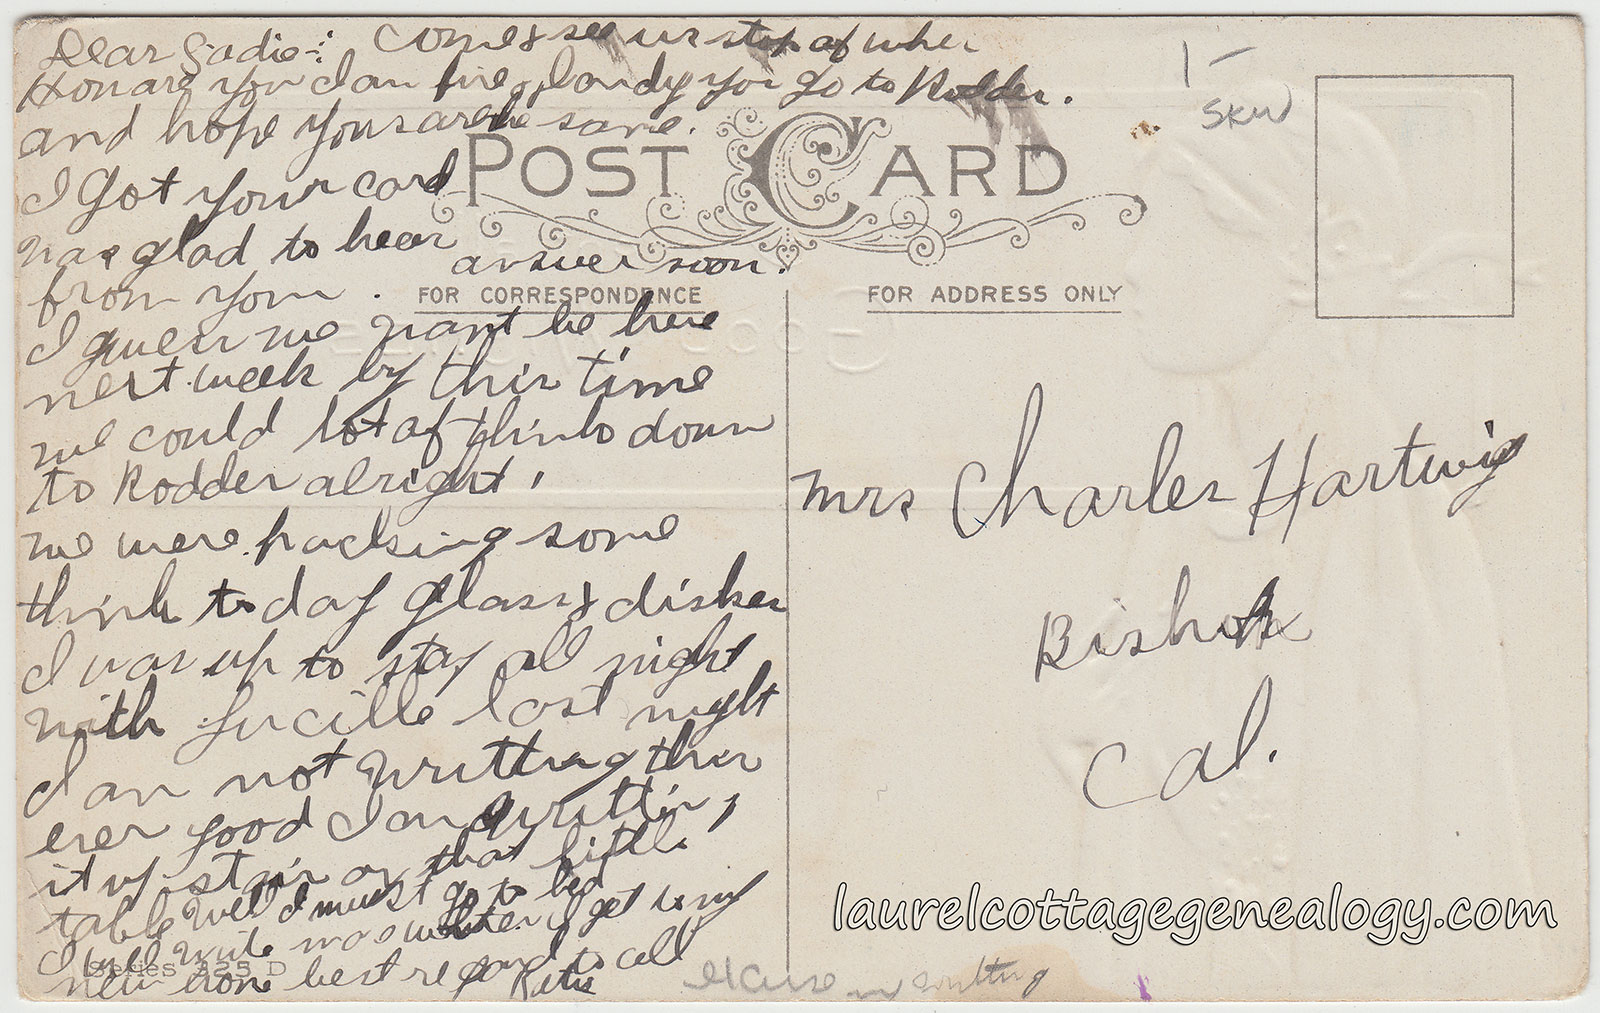 Dear Sadie:
How are you I am fine & dandy
and hope yous are the same.
I got your card
was glad to hear
from your.
I guess we wont be here
next week by this time
we could lot of think down
to Rodder alright,
we were packsing some
think to day glass & dishes
I was up to stay all night
with Lucille last night
I am not writting this
ever good I am writtin,
it up stair on that little
table well I must go to bed
I will write mos when I get to my
new home best regard to all
Katie
Come & see us stop of when
you go to Rodder.
answer soon.
excuse my writting
POST CARD
FOR CORRESPONDENCE
FOR ADDRESS ONLY
1-
SKW
Mrs Charles Hartwig
Bishop
Cal.
Series 325 D
laurelcottagegenealogy.com